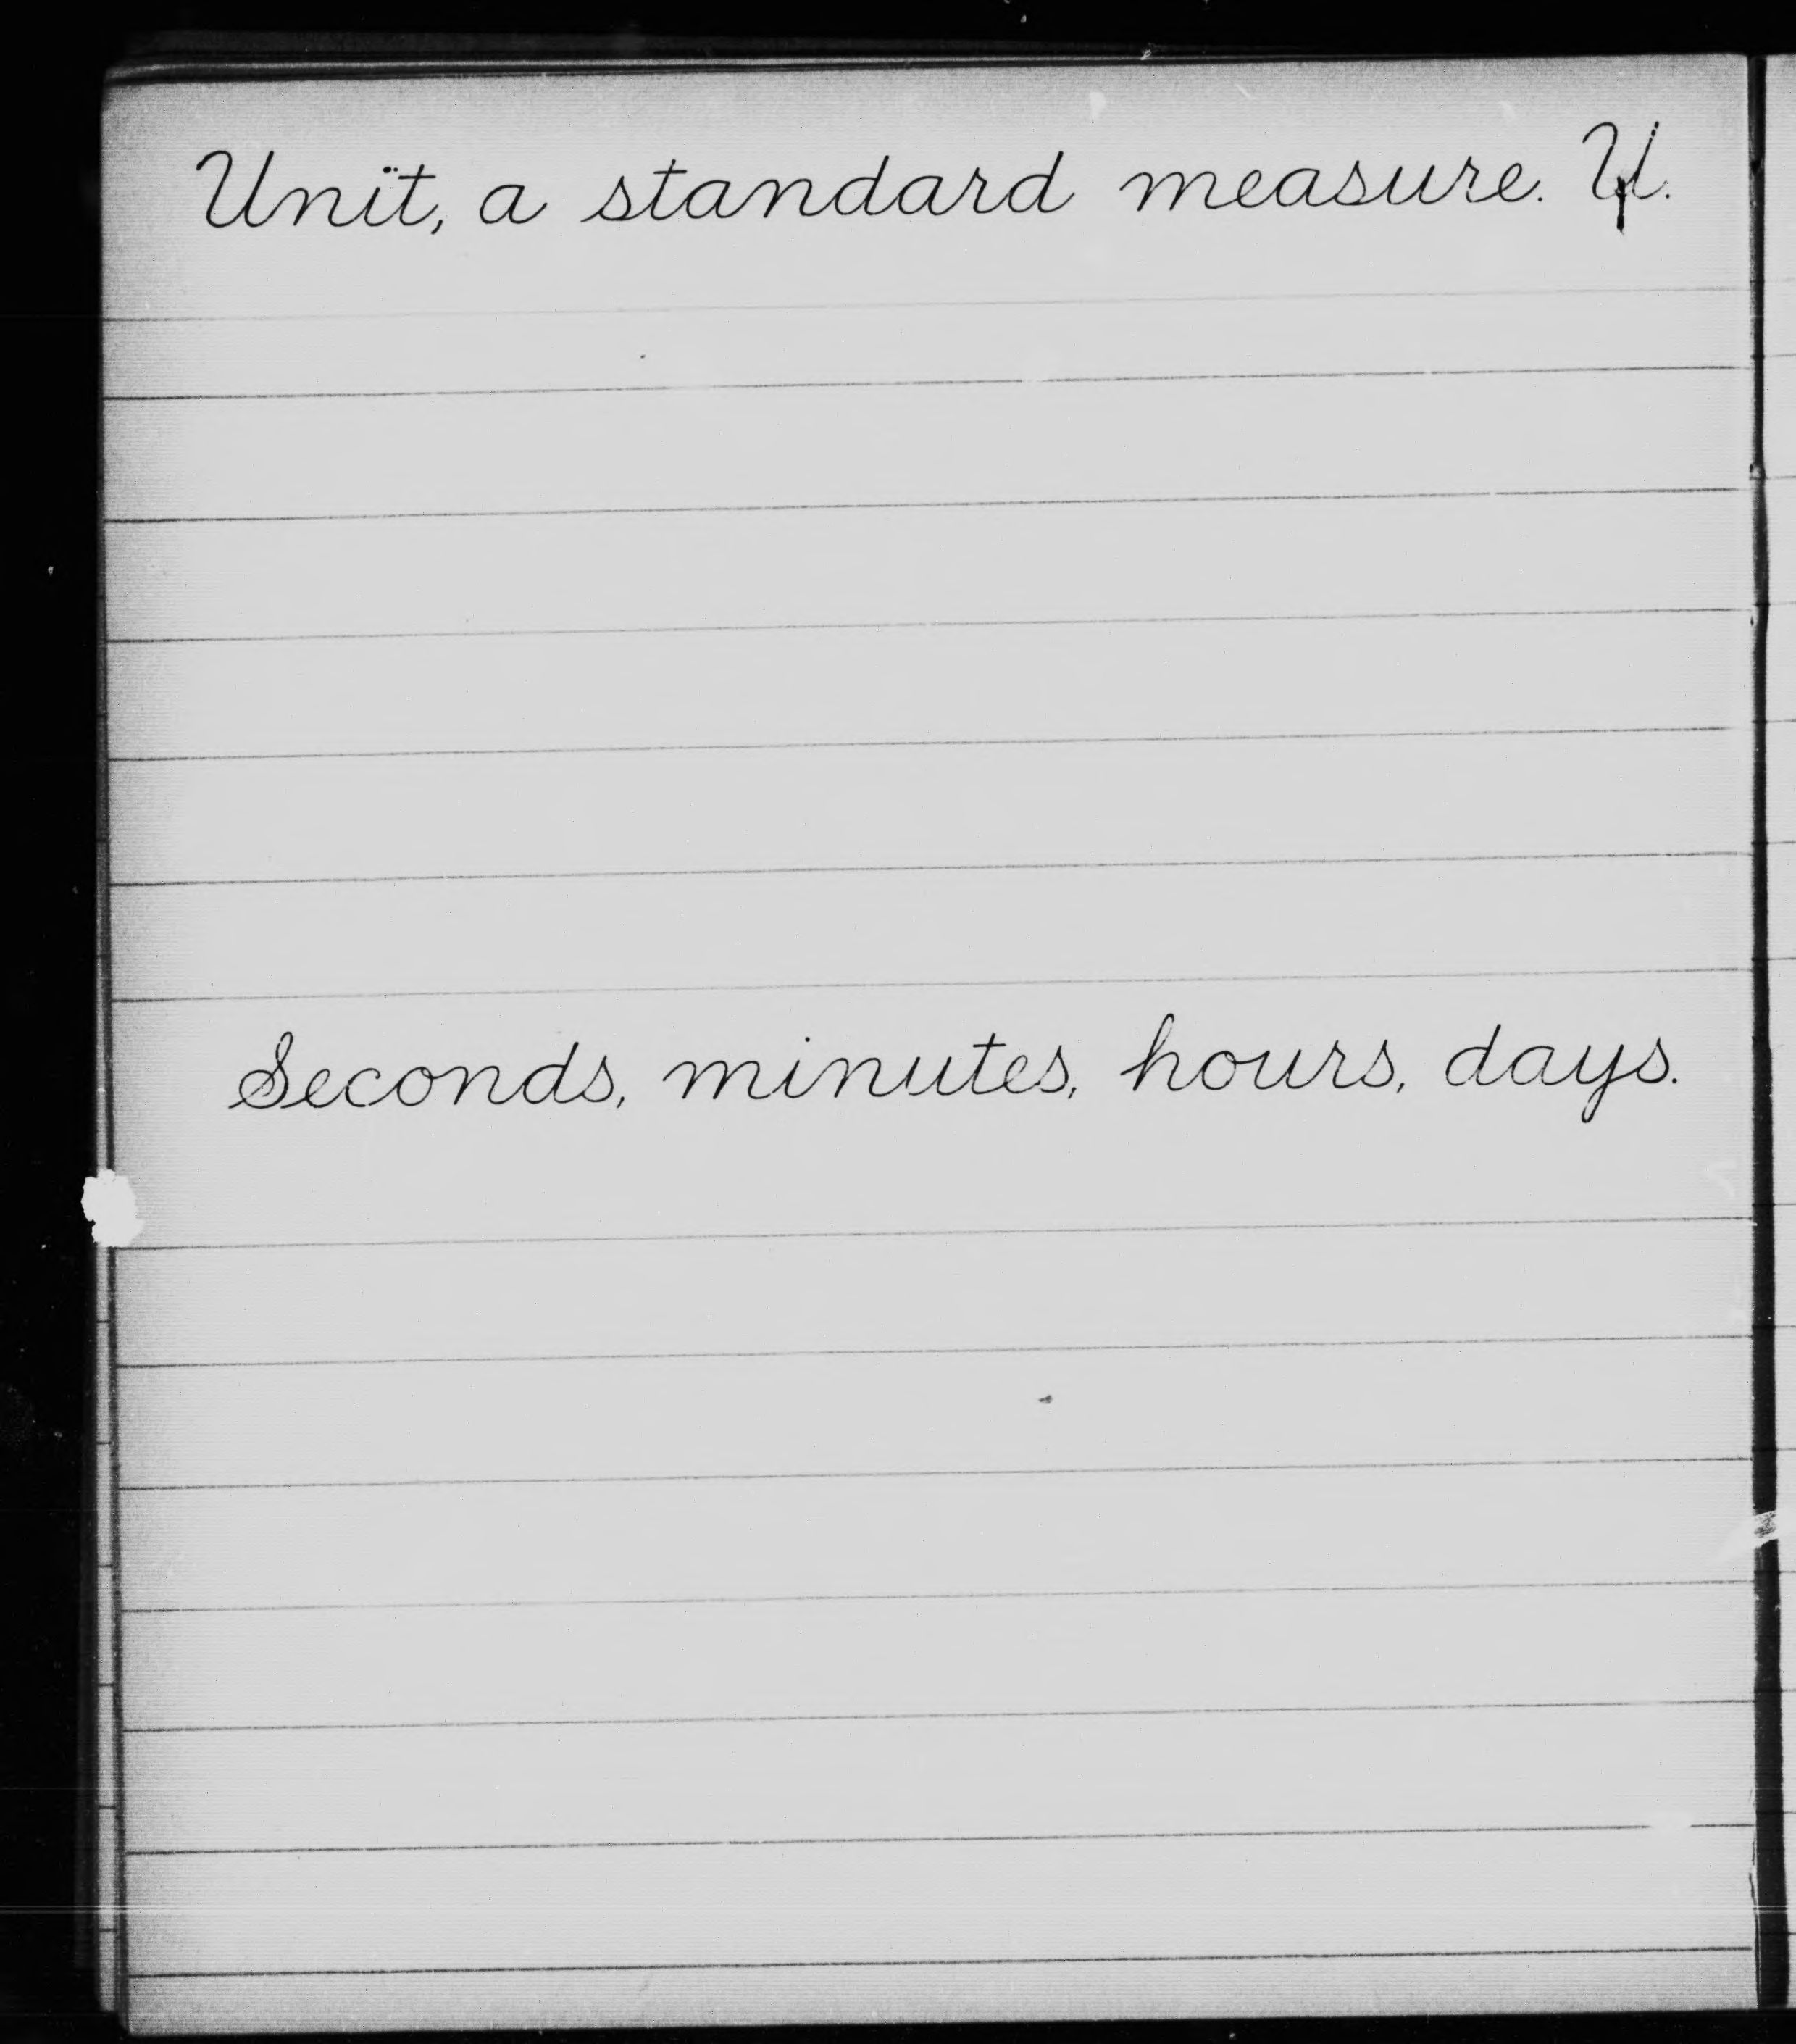 Unit, a standard measure. U.
Seconds, minutes, hours, days.